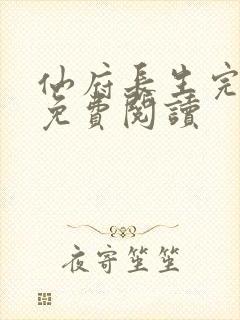 仙府長生完
免費閱讀
夜寄笙笙